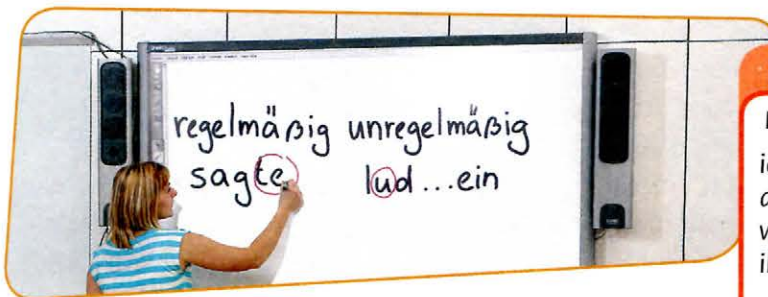 regelmäßig unregelmäßig
sagte lud...ein